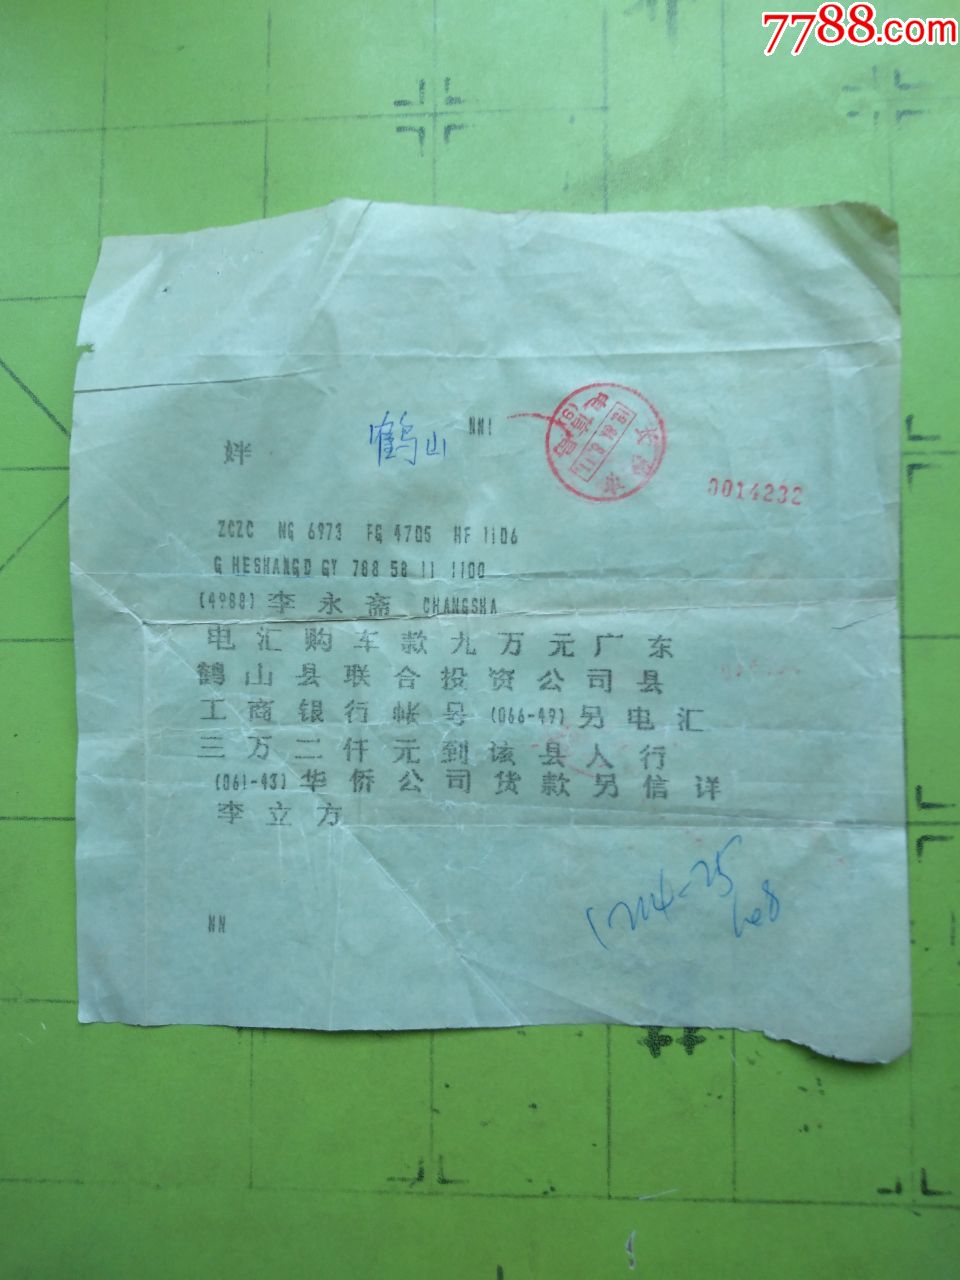 7788.com
鹤山
NNI
姅
0014232
ZCZC NG 6973 FG 4705 HF 1106
G HESHANGD GY 788 58 11 1100
(4988) 李永斋 CHANGSHA
电汇购车款九万元广东
鹤山县联合投资公司县
工商银行帐号(066-49)另电汇
三万二仟元到该县人行
(061-43)华侨公司货款另信详
李立方
NN